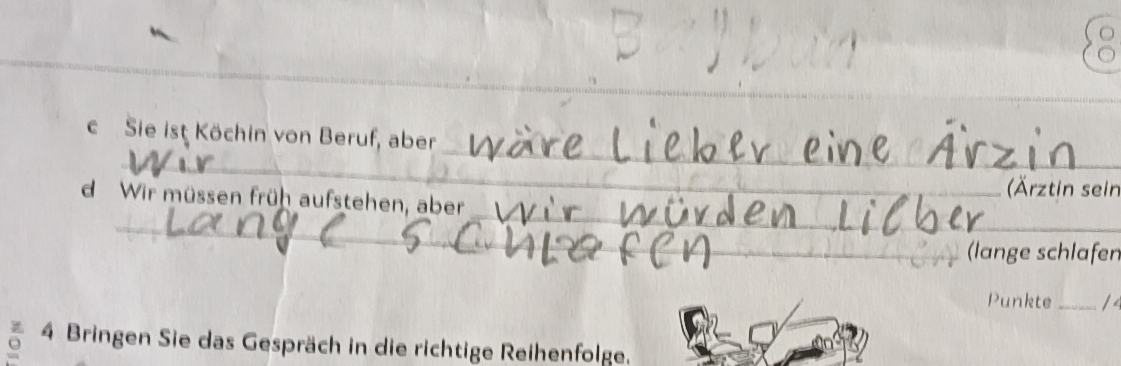 c Sie ist Köchin von Beruf, aber wäre Lieber eine Ärzin
Wir (Ärztin sein
d Wir müssen früh aufstehen, aber wir würden Lieber
Lange schlafen (lange schlafen
Punkte /4
4 Bringen Sie das Gespräch in die richtige Reihenfolge.